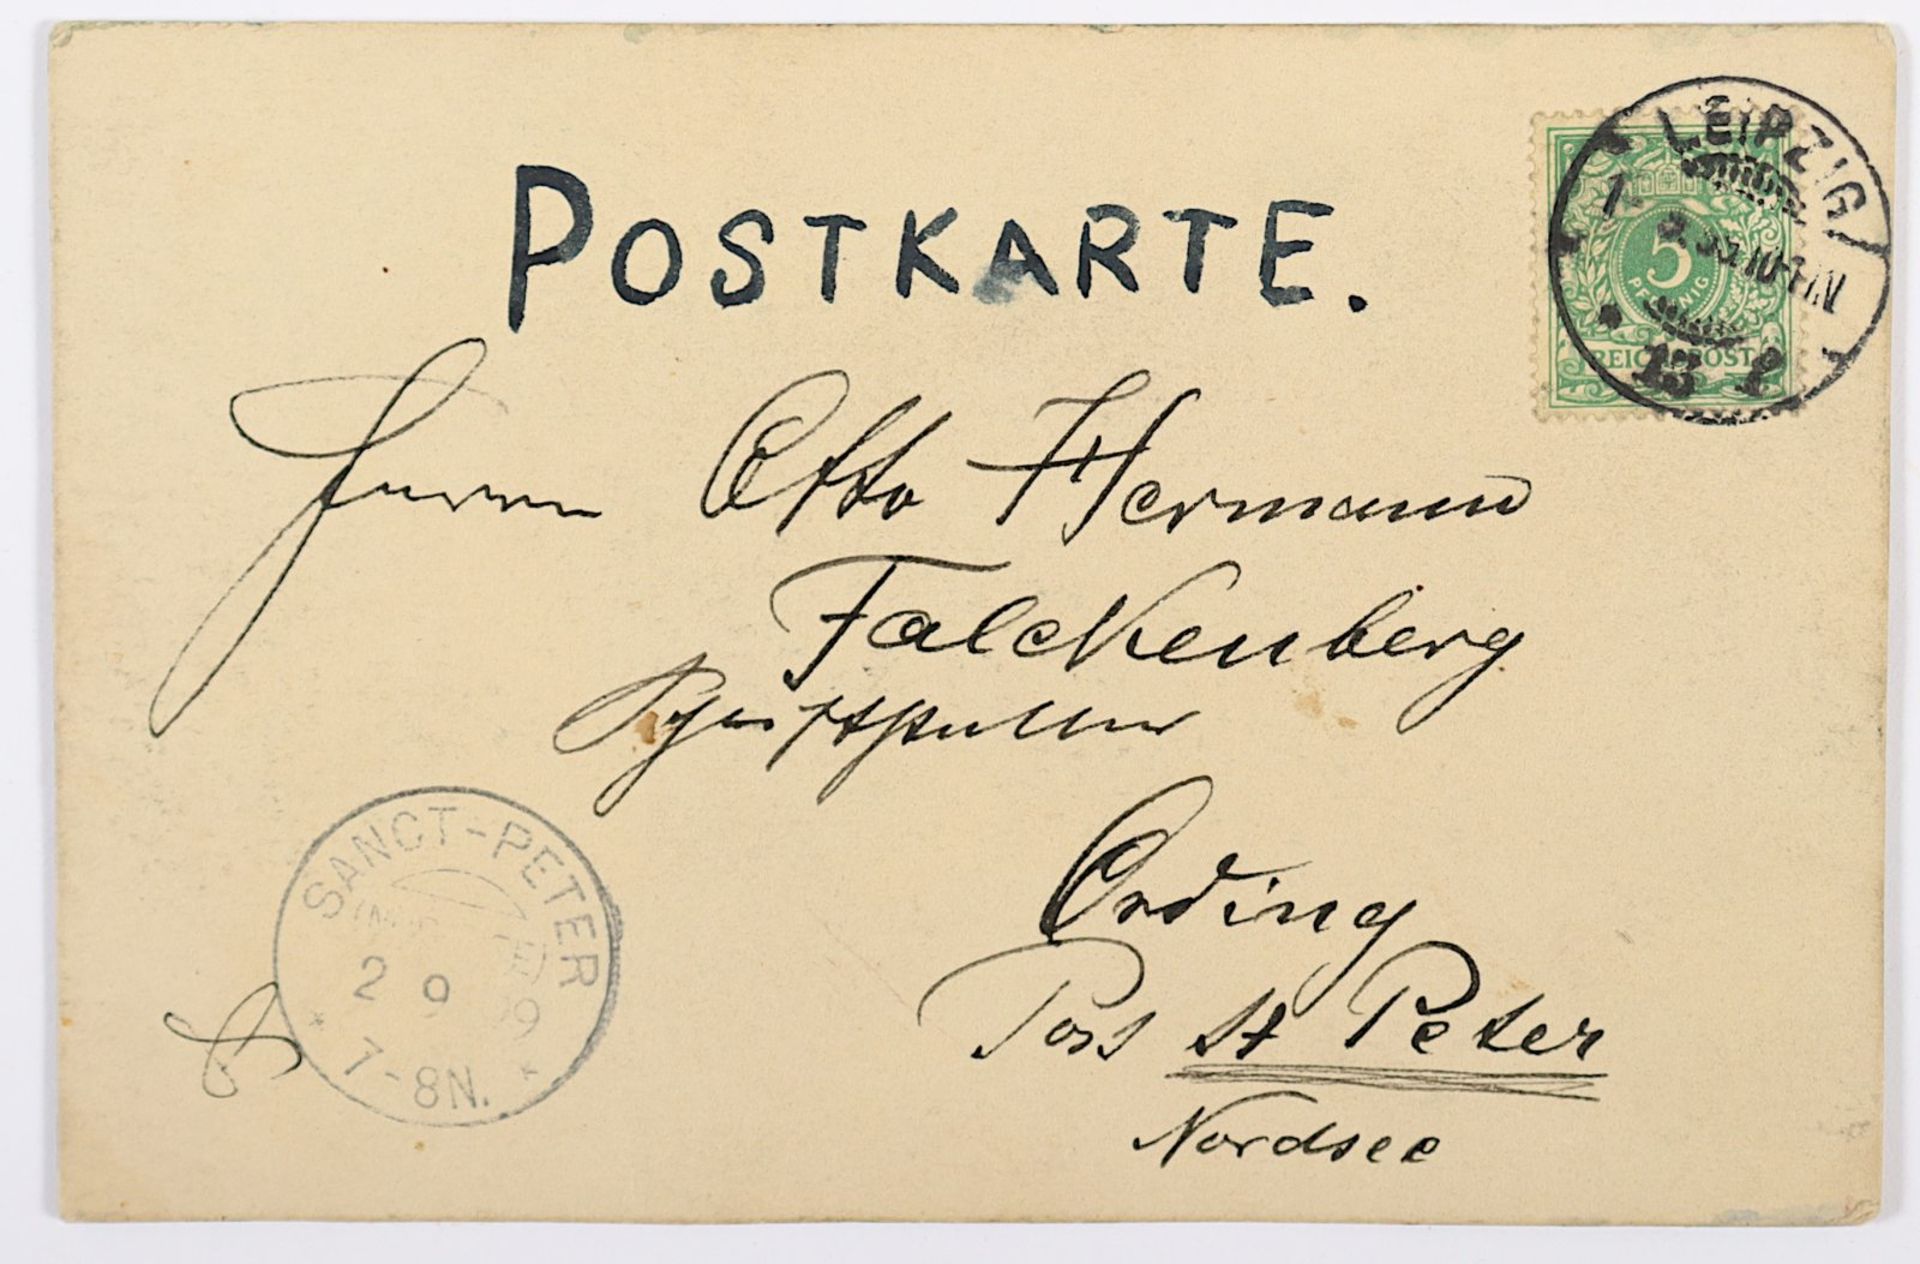 POSTKARTE.
LEIPZIG
10-11V.
13
5
PFENNIG
REICHSPOST
Herrn Otto Hermann
Falckenberg
Schriftsteller
Ording
Post St Peter
Nordsee
SANCT-PETER
2 9 99
7-8N.